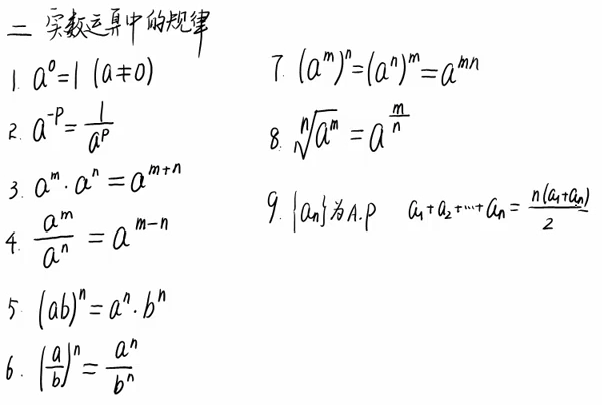 二 实数运算中的规律
1. a⁰=1 (a≠0)
2. a^{-p}=\frac{1}{a^p}
3. a^m·a^n=a^{m+n}
4. \frac{a^m}{a^n}=a^{m-n}
5. (ab)^n=a^n·b^n
6. (\frac{a}{b})^n=\frac{a^n}{b^n}
7. (a^m)^n=(a^n)^m=a^{mn}
8. \sqrt[n]{a^m}=a^{\frac{m}{n}}
9. {a_n}为A.P a_1+a_2+…+a_n=\frac{n(a_1+a_n)}{2}